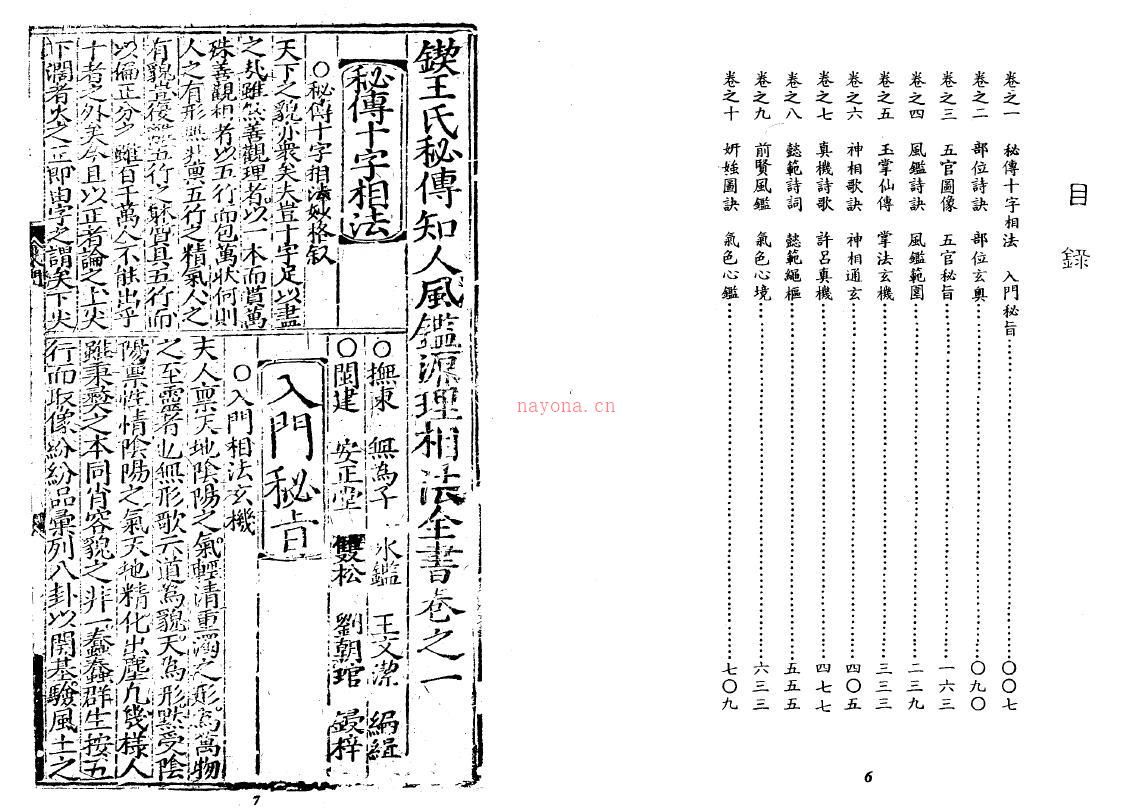 目錄
卷之一 秘傳十字相法 入門秘旨 〇〇七
卷之二 部位詩訣 部位玄奥 〇九〇
卷之三 五官圖像 五官秘旨 一六三
卷之四 風鑑詩訣 風鑑範圍 二三九
卷之五 玉掌仙傳 掌法玄機 三三三
卷之六 神相歌訣 神相通玄 四〇五
卷之七 真機詩歌 許呂真機 四七七
卷之八 懿範詩詞 懿範繩樞 五五五
卷之九 前賢風鑑 氣色心境 六三三
卷之十 妍媸圖訣 氣色心鑑 七〇九
6
鍥王氏秘傳知人風鑑源理相法全書卷之一
秘傳十字相法
〇秘傳十字相法妙格叙
天下之貌亦衆矣夫豈十字足以盡
之哉雖然善觀理者以一本而貫萬
殊善觀相者以五行而包萬狀何則
人之有形無非禀五行之精氣人之
有貌豈復離五行之體質具五行而
以偏正分之雖百千萬人不能出乎
十者之外矣今且以正者論之上尖
下濶者火之立即由字之謂矣下尖
〇撫東 無為子 水鑑 王文潔 編緝
〇閩建 安正堂 雙松 劉朝琯 鋟梓
入門秘旨
〇入門相法玄機
夫人禀天地陰陽之氣輕清重濁之形為萬物
之至靈者也無形歌云道為貌天為形默受陰
陽禀性情陰陽之氣天地精化出塵凡幾樣人
雖秉彝之本同肖容貌之非一蠢蠢群生按五
行而取像紛紛品彙列八卦以開基驗風土之
7
nayona.cn